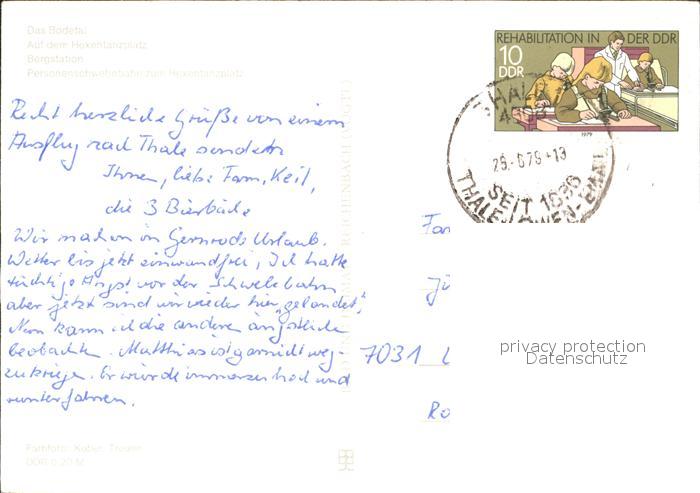 Das Bodetal
Auf dem Hexentanzplatz
Bergstation
Personenschwebebahn zum Hexentanzplatz
REHABILITATION IN DER DDR
10
DDR
1979
THALE
SEIT 1686
Recht herzliche Grüße von einem
Ausflug nach Thale senden
Ihnen, liebe Fam. Keil,
die 3 Bierbäche
Wir machen in Gernrode Urlaub.
Wetter bis jetzt einwandfrei, Ich hatte
tüchtige Angst vor der Schwebebahn
aber jetzt sind wir wieder hier „gelandet“,
Nun kann ich die andere ängstliche
beobachten. Matthias ist garnicht weg-
zukriegen. Er würde immerzu hoch und
runterfahren.
Fa
7031 L
Ro
privacy protection
Datenschutz
REICHENBACH
Farbfoto:
DDR 0,20 M